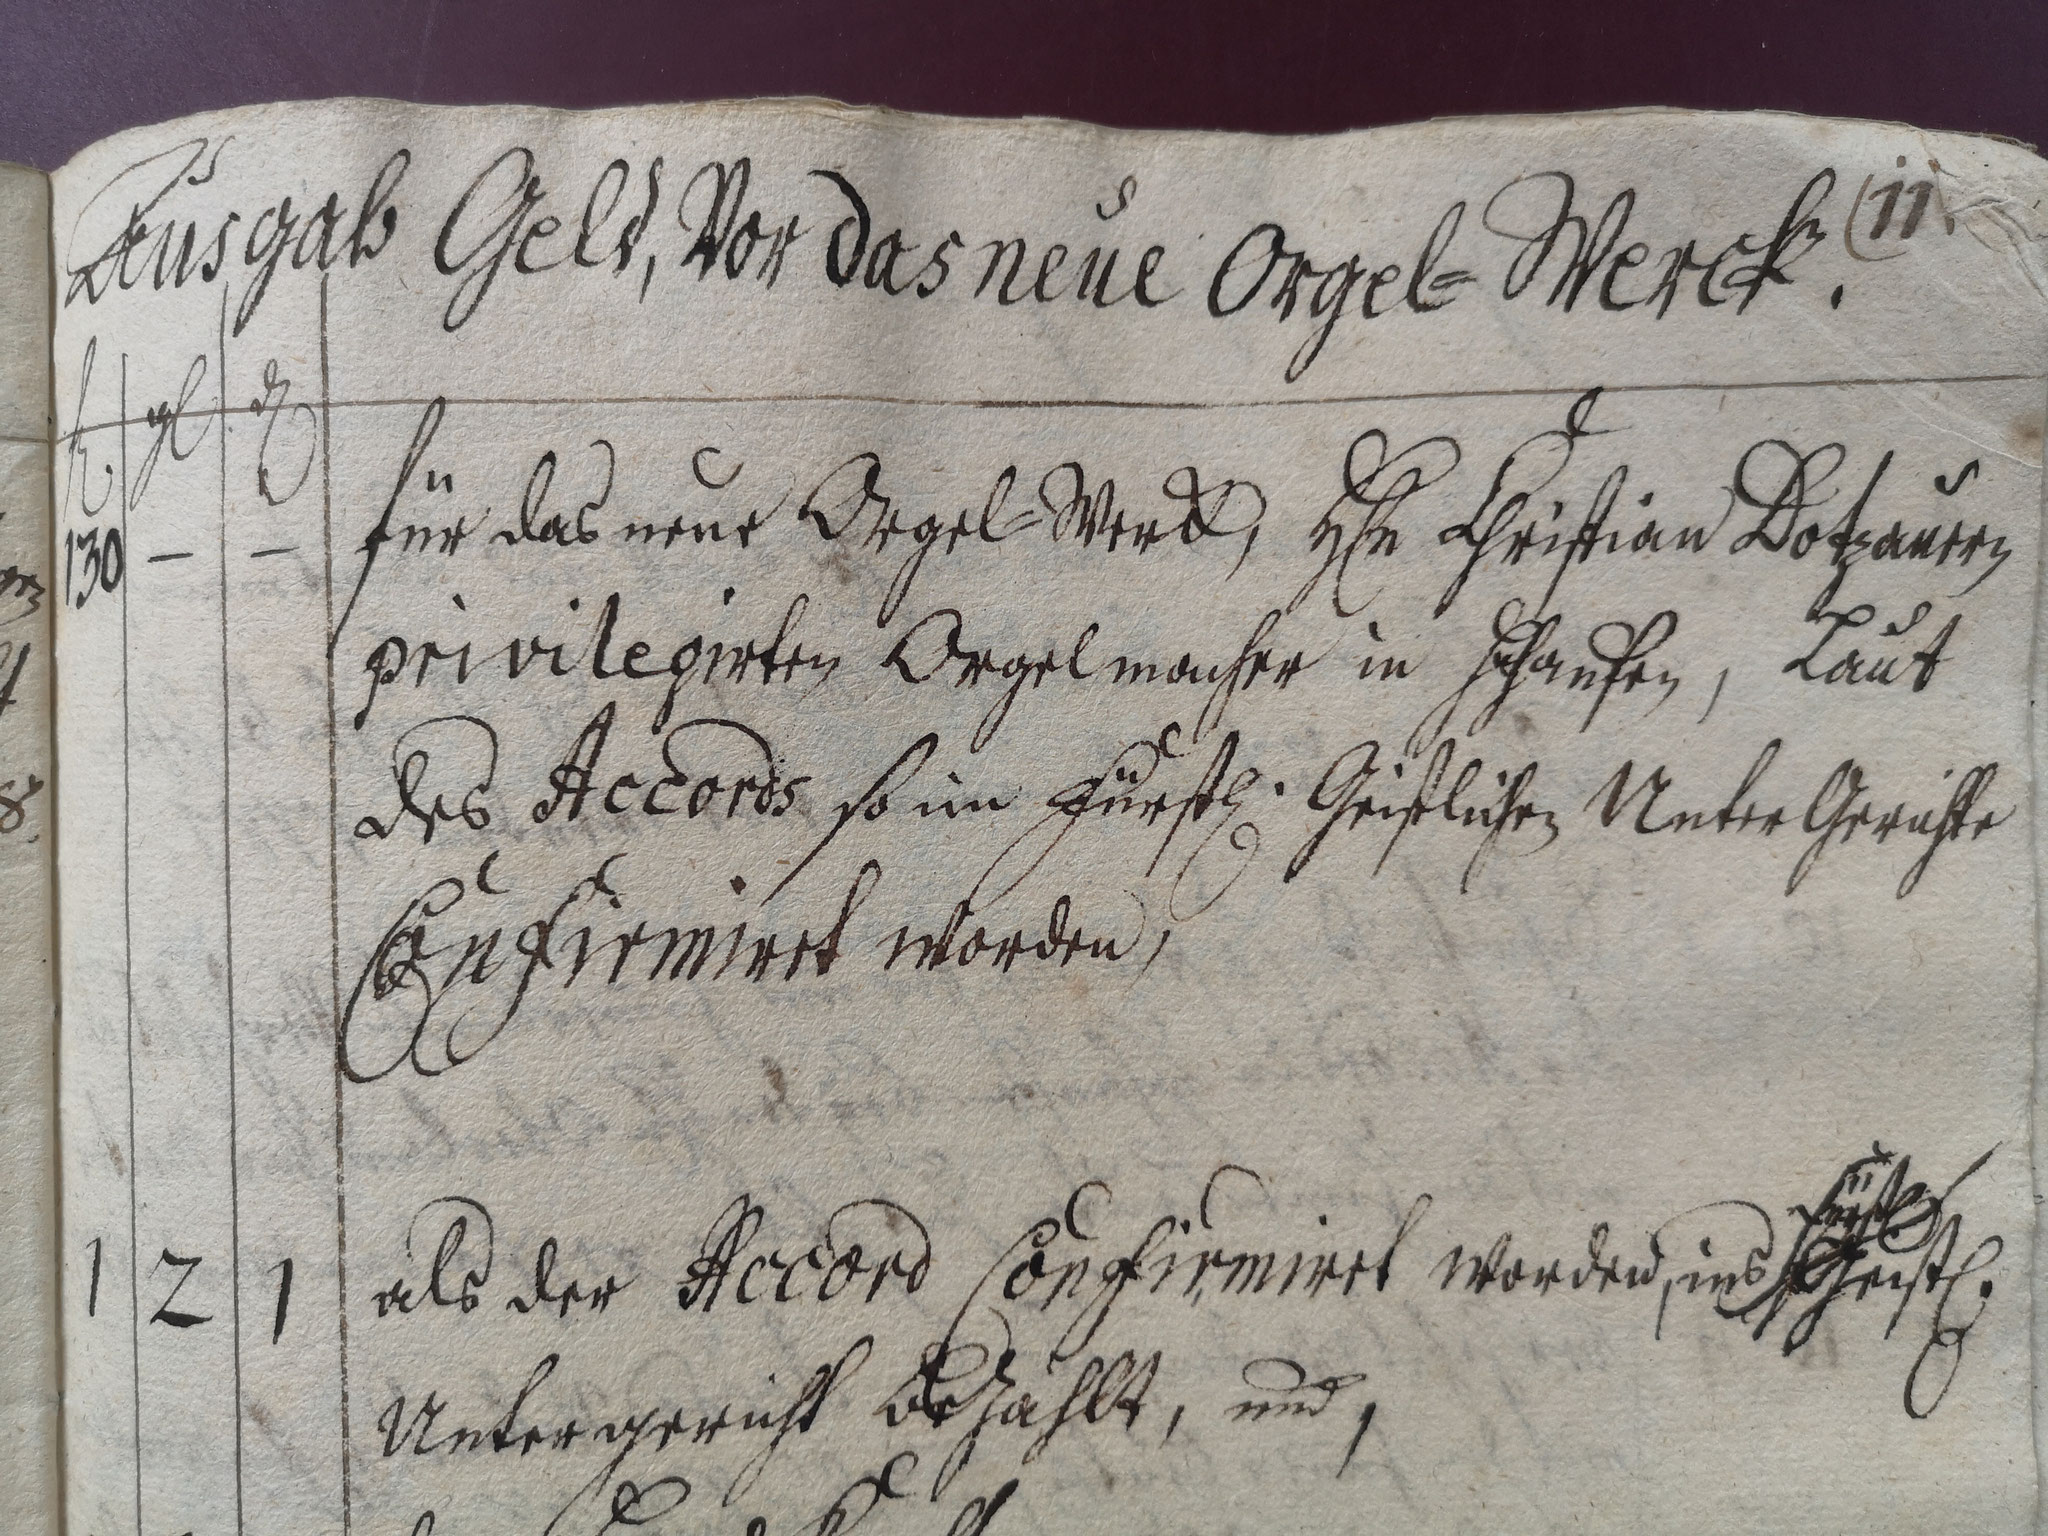 Ausgab Geld, Vor das neue Orgel= Werck. (11.
fl. gl. d
130 – – für das neue Orgel=Werck, Hln Christian Dotzauern
privilegirten Orgelmacher in , Laut
des Accords so im Fürstl. Geistlichen Unter Gerichte
Confirmiret worden,
1 2 1 als der Accord Confirmiret worden, ins Fürstl. Geistl.
Untergericht Bezahlt, und,